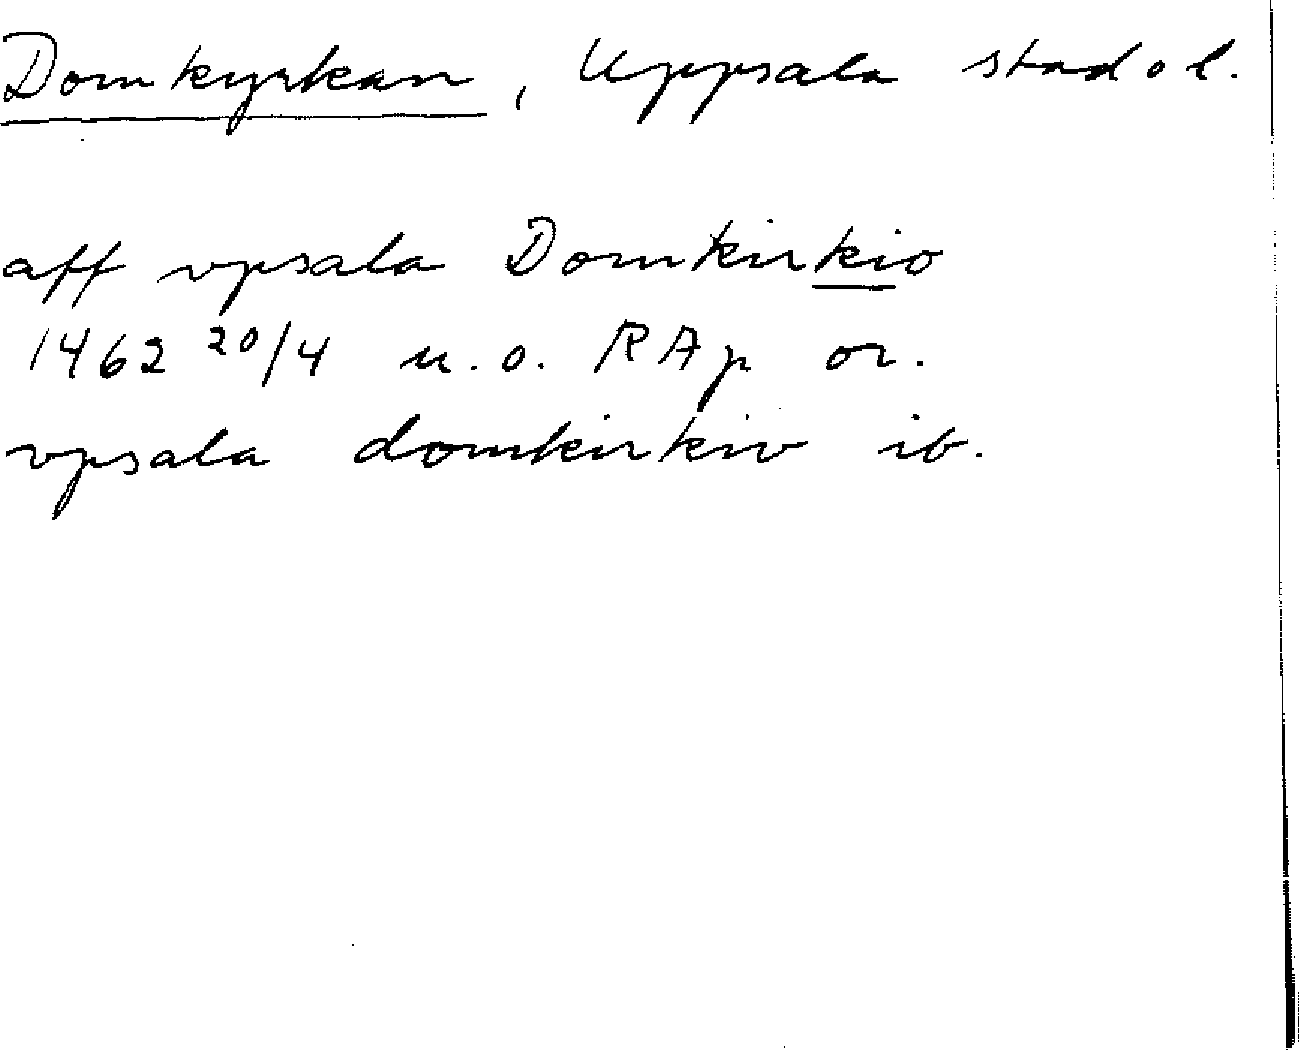 Domkyrkan, Uppsala stad o l.
aff vpsala Domkirkio
1462 20/4 u.o. RAp or.
vpsala domkirkiv ib.